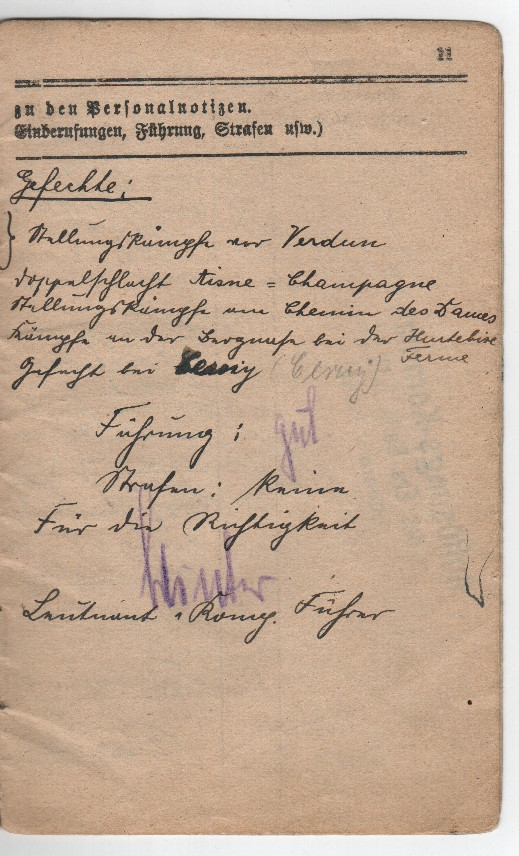 11
zu den Personalnotizen.
Einberufungen, Führung, Strafen usw.)
Gefechte:
Stellungskämpfe vor Verdun
Doppelschlacht Aisne = Champagne
Stellungskämpfe am Chemin des Dames
Kämpfe an der Bergnase bei der Hurtebise
Ferme
Gefecht bei Cerny (Cerny)
Führung: gut
Strafen: keine
Für die Richtigkeit
Leutnant u. Komp. Führer